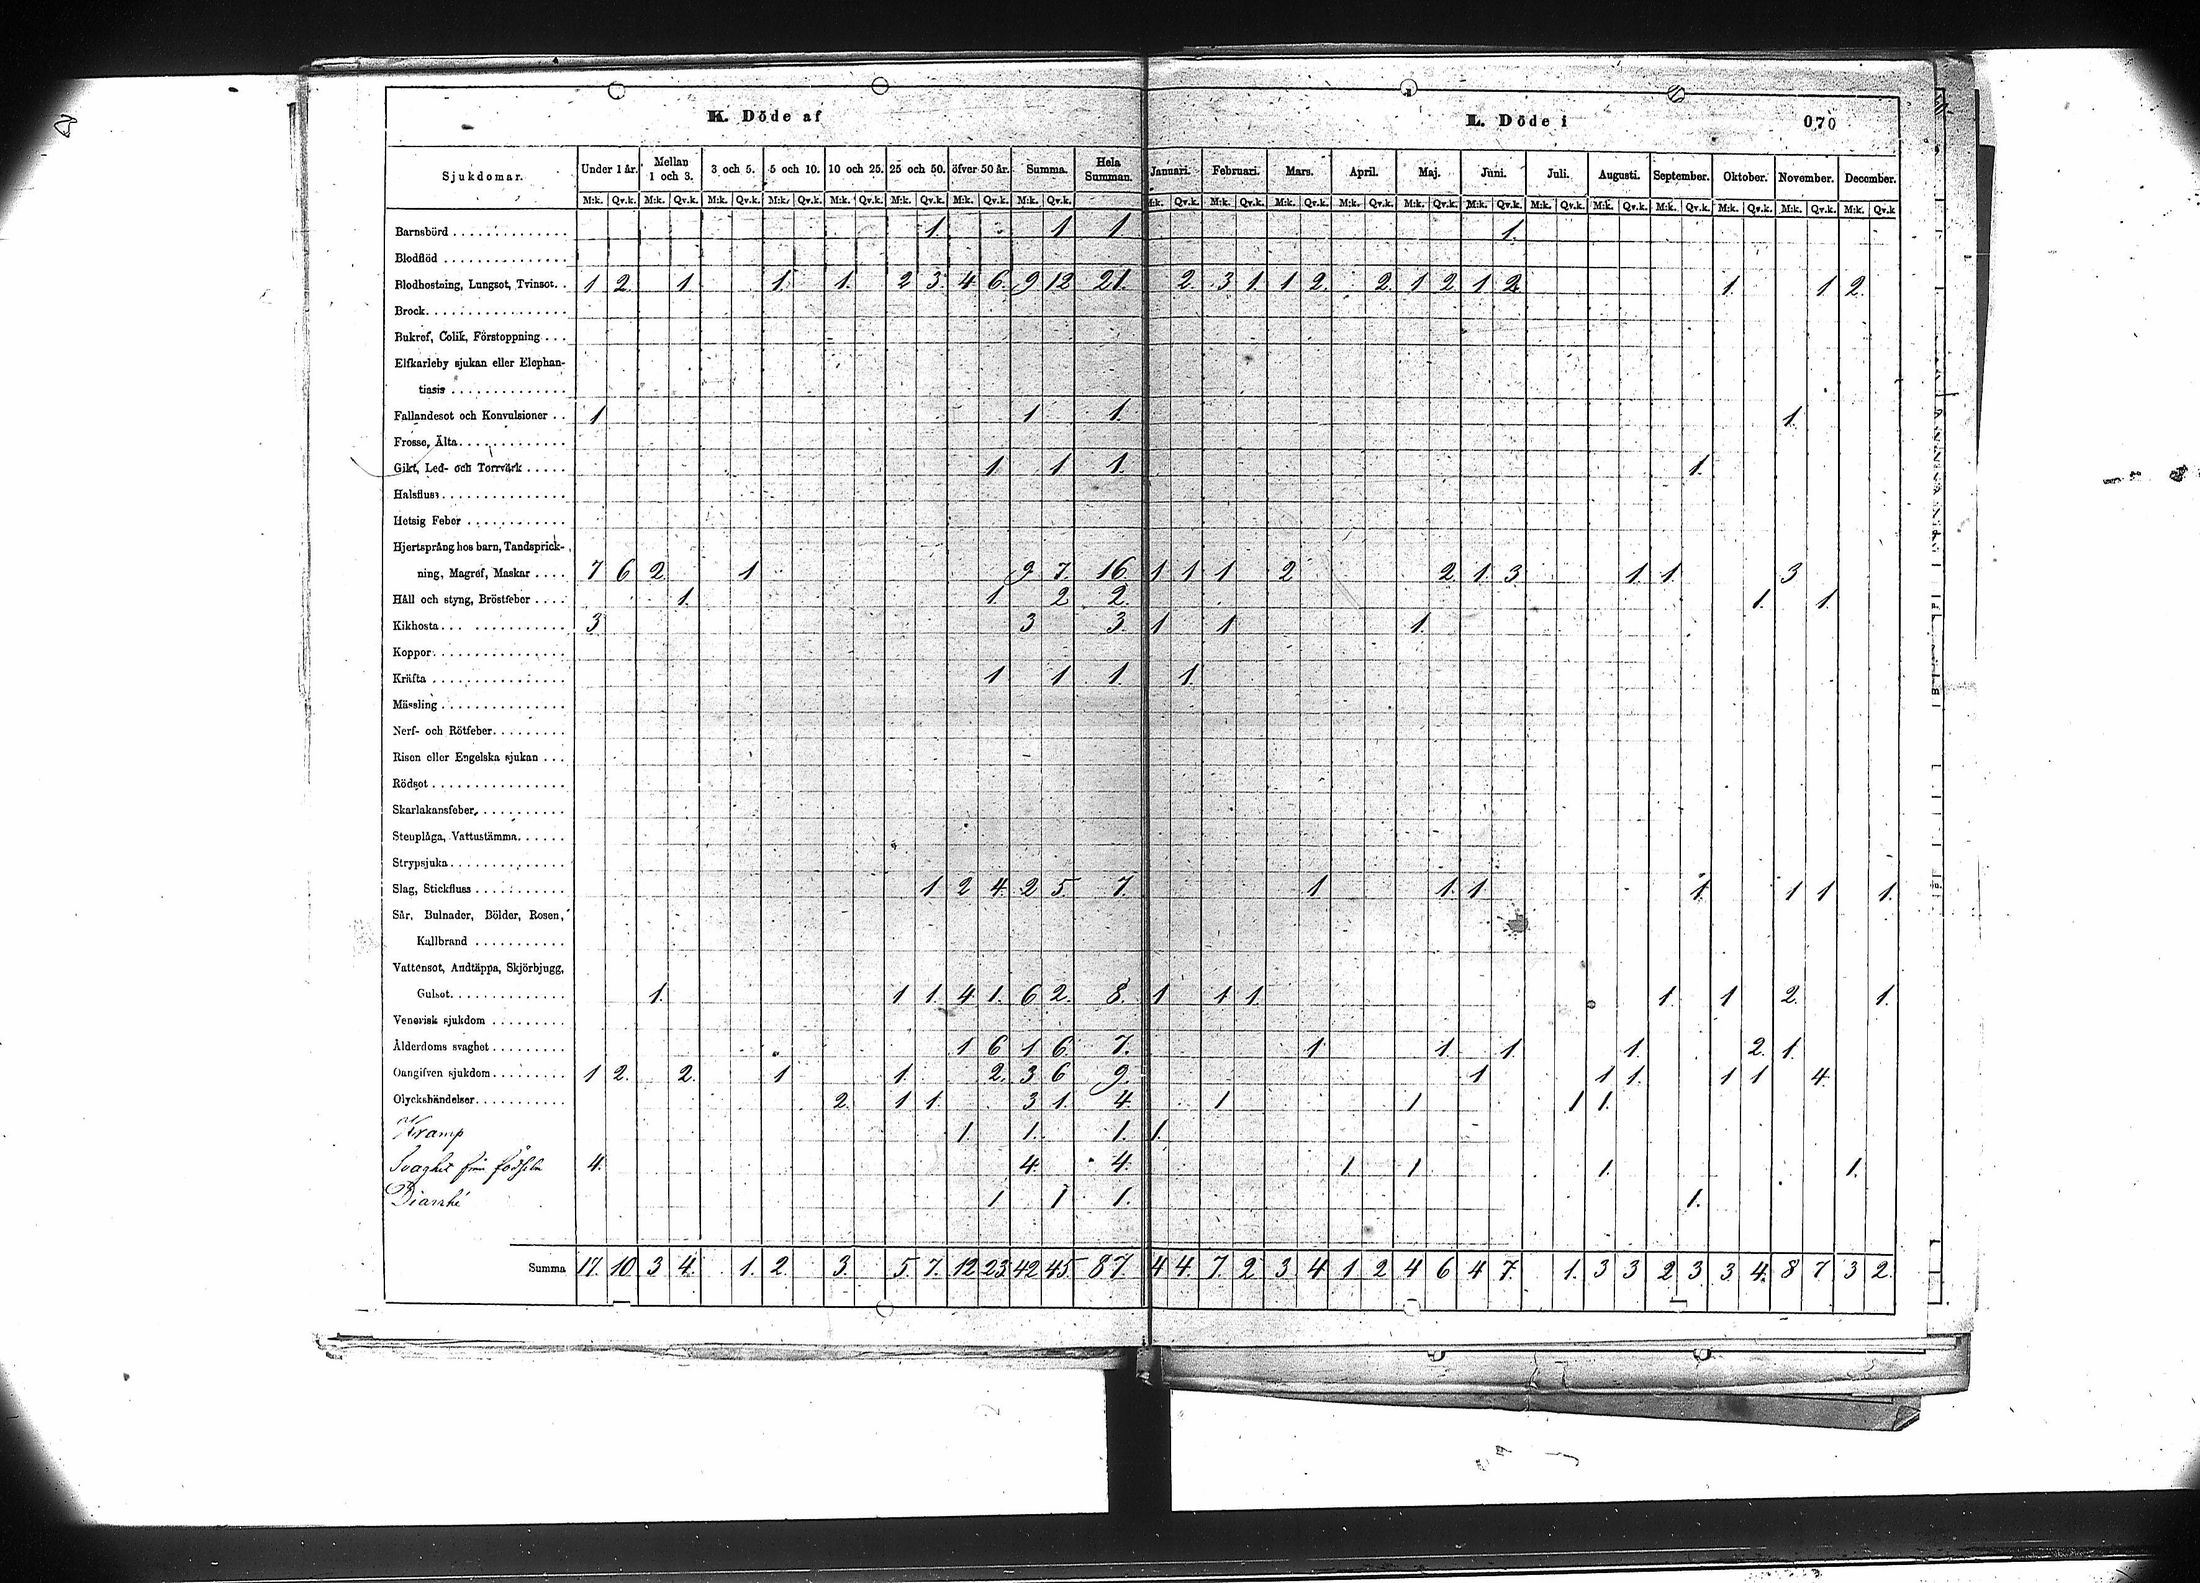 K. Döde af L. Döde i 070
Sjukdomar. Under 1 år. Mellan 1 och 3. 3 och 5. 5 och 10. 10 och 25. 25 och 50. öfver 50 år. Summa. Hela Summan. Januari. Februari. Mars. April. Maj. Juni. Juli. Augusti. September. Oktober. November. December.
M:k. Qv.k. M:k. Qv.k. M:k. Qv.k. M:k. Qv.k. M:k. Qv.k. M:k. Qv.k. M:k. Qv.k. M:k. Qv.k. M:k. Qv.k. M:k. Qv.k. M:k. Qv.k. M:k. Qv.k. M:k. Qv.k. M:k. Qv.k. M:k. Qv.k. M:k. Qv.k. M:k. Qv.k. M:k. Qv.k. M:k. Qv.k. M:k. Qv.k
Barnsbörd 1 1 1 1.
Blodflöd
Blodhostning, Lungsot, Tvinsot. 1 2 1 1. 1. 2 3. 4 6. 9 12 21. 2. 3 1. 1 2. 2. 1 2 1 2. 1. 1 2.
Brock
Bukref, Colik, Förstoppning
Elfkarleby sjukan eller Elephan-
tiasis
Fallandesot och Konvulsioner 1 1 1. 1.
Frosse, Älta
Gikt, Led- och Torrvärk 1 1 1. 1.
Halsfluss
Hetsig Feber
Hjertsprång hos barn, Tandsprick-
ning, Magref, Maskar 7 6 2 1 9 7. 16 1 1 1 2 2 1. 3 1. 1 3
Håll och styng, Bröstfeber 1. 1. 2 2. 1. 1.
Kikhosta 3 3 3. 1 1 1.
Koppor
Kräfta 1 1 1. 1.
Mässling
Nerf- och Rötfeber
Risen eller Engelska sjukan
Rödsot
Skarlakansfeber
Stenplåga, Vattustämma
Strypsjuka
Slag, Stickfluss 1 2 4. 2 5. 7. 1 1. 1 1. 1 1 1.
Sår, Bulnader, Bölder, Rosen,
Kallbrand
Vattensot, Andtäppa, Skjörbjugg,
Gulsot 1. 1 1. 4 1. 6 2. 8. 1 1 1 1. 1 2. 1.
Venerisk sjukdom
Ålderdoms svaghet 1 6 1 6. 7. 1 1. 1 1. 2. 1.
Oangifven sjukdom 1 2. 2. 1 1. 2. 3 6 9. 1 1 1. 1 1 4.
Olyckshändelser 2. 1 1. 3 1. 4. 1 1 1 1.
Kramp 1. 1. 1. 1.
Svaghet från födseln 4. 4. 4. 1 1 1. 1.
Diarrhé 1 1 1. 1.
Summa 17. 10 3 4. 1. 2. 3. 5 7. 12 23 42 45. 87. 4 4. 7. 2 3 4 1 2 4 6 4 7. 1. 3 3 2 3 3 4. 8 7 3 2.